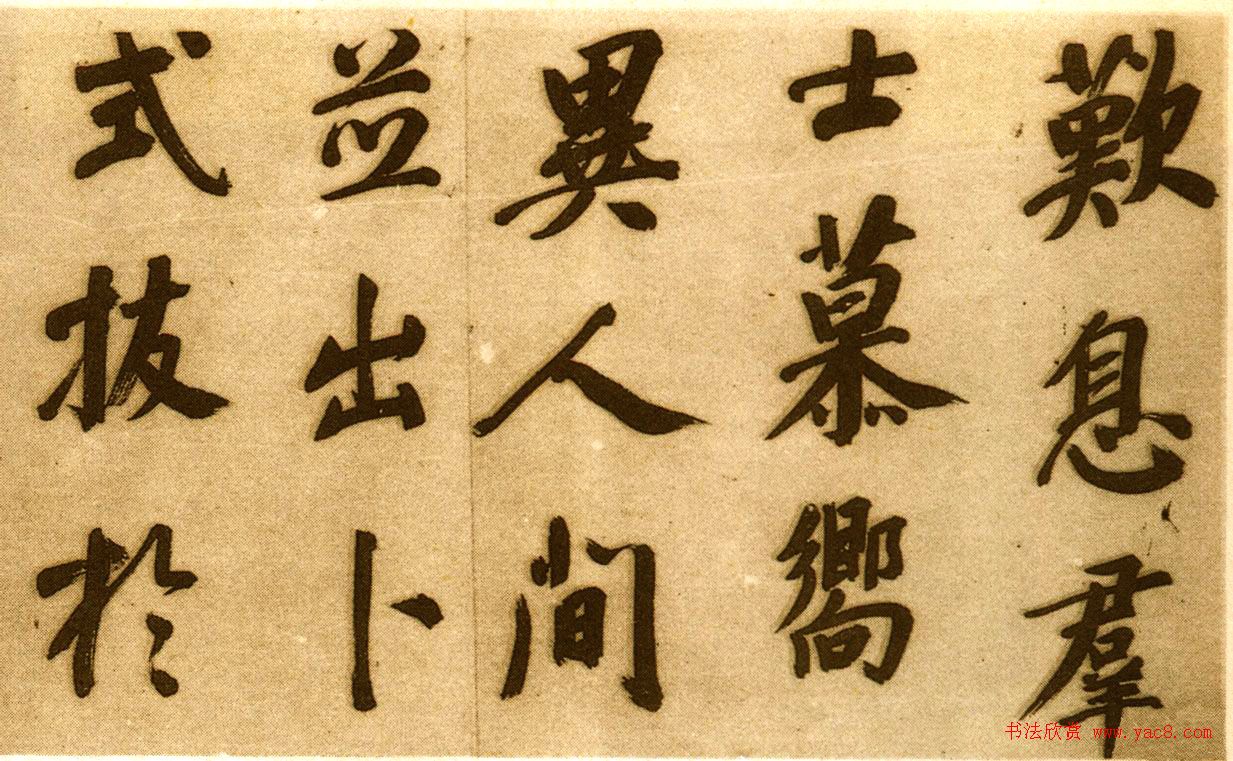 歎息羣
士慕嚮
異人間
並出卜
式拔於
书法欣赏 www.yac8.com